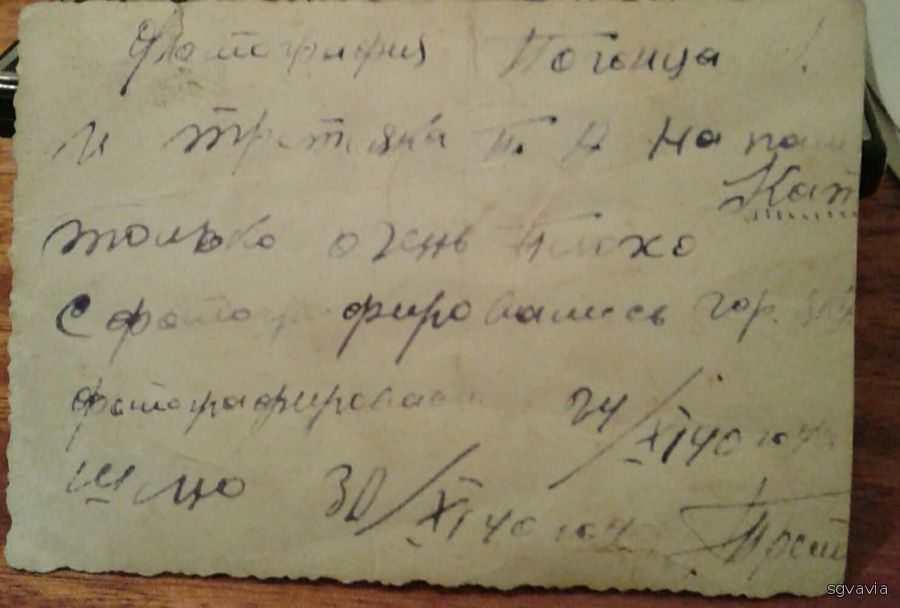 Фотография Поганца
и Третьяка П. А на па
Кат
только очень плохо
сфотографировались гор.
фотографировал 24/XI 40 год
шлю 30/XI 40 год Трет
sgvavia